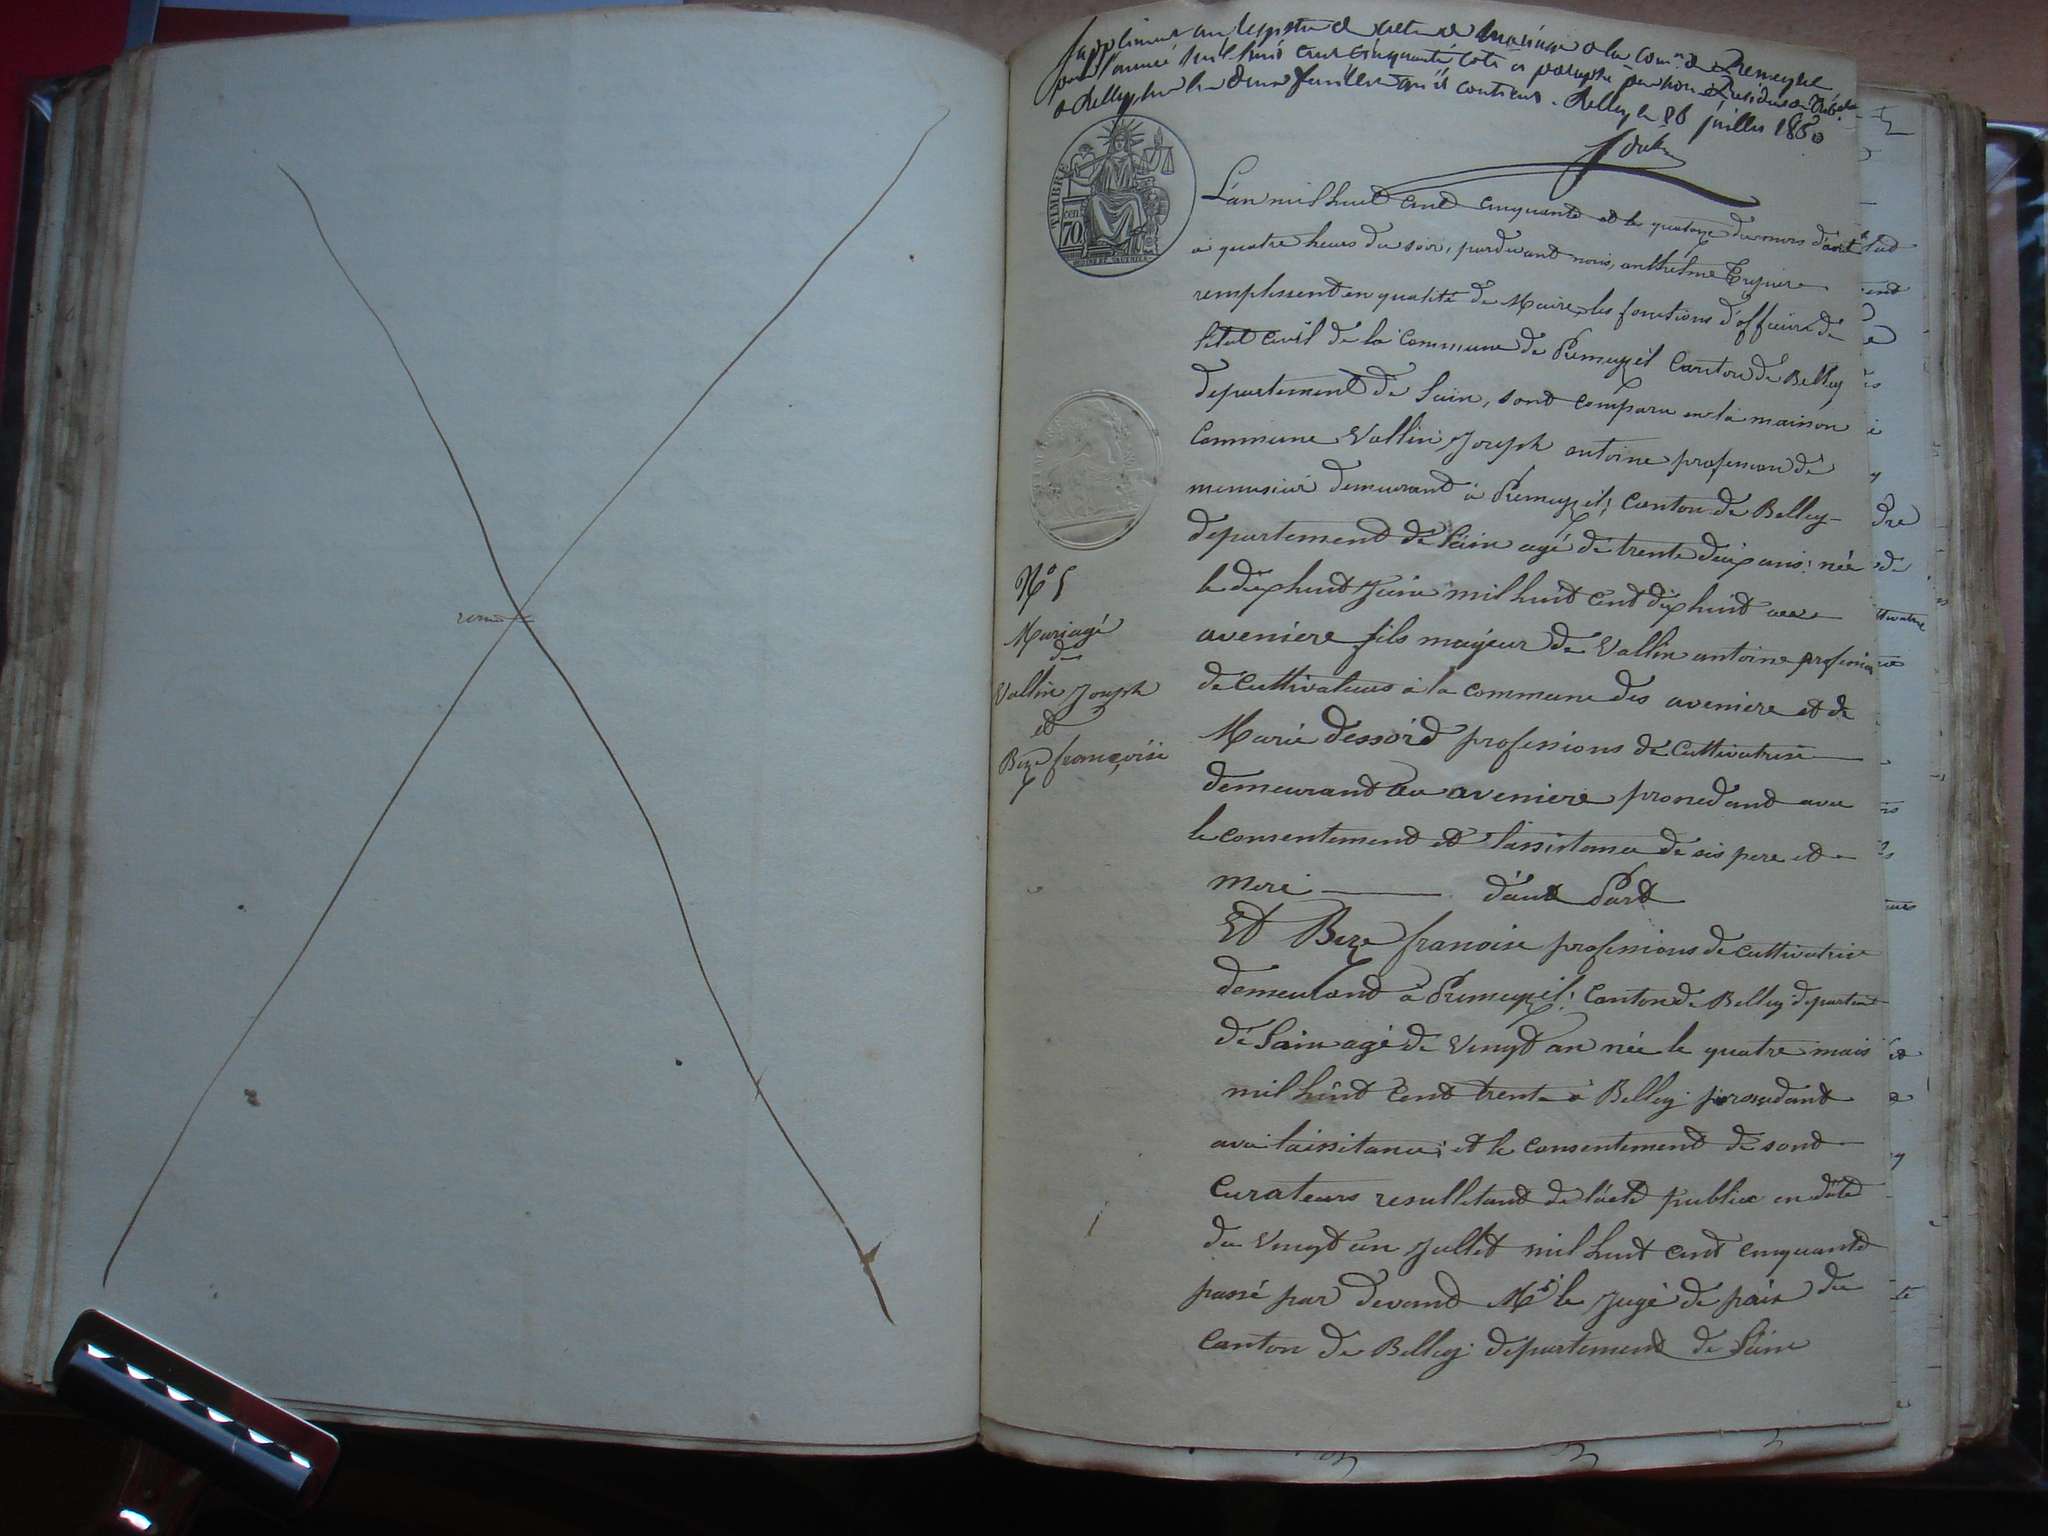 Supplément au registre des actes de mariage de la com.ne de Premeyzel
pour l'année mil huit cent cinquante coté et paraphé par nous Président du Trib.al
de Belley, sur les deux feuilles qu'il contient. Belley le 26 juillet 1850
TIMBRE
cen.
70
L'an mil huit cent cinquante et le quatorze du mois d'aout
à quatre heures du soir, pardevant nous, anthelme
remplissent en qualité de Maire, les fonctions d'officiere de
l'etat civil de la Commune de Premeyzel Canton de Belley
departement de Lain, sont comparu en la maison
Commune Vallin Joseph antoine profession de
menusier demeurant à Premeyzel, Canton de Belley
departement de Lain agé de trente deux ans; née
le dix huit Juin mil huit cent dix huit aux
aveniere fils majeur de Vallin antoine profession
de cultivateurs à la commune des aveniere et de
Marie dessoid professions de cultivatrise
demeurant au aveniere procedant avec
le consentement et lassistance de ses pere et
mere d'aut Part
N° 5
Mariage
de
Vallin Joseph
et
Beze françoise
Et Beze franoise professions de cultivatrise
demeurant à Premeyzel, Canton de Belley departent
de Lain agé de vingt an née le quatre mais
mil huit cent trente à Belley procedant
avec laissitance, et le consentement de sont
curateurs resulletant de lacte publice en date
du vingt un Jullet mil huit cent cinquante
passé par devant Mr le Juge de paix du
Canton de Belley departement de Lain